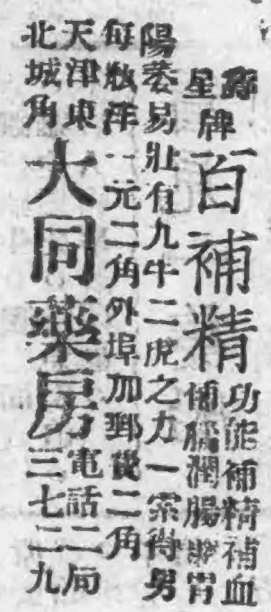 壽星牌
百補精
功能補精補血
補腦潤腸壯胃
陽萎易壯有九牛二虎之力一索得男
每瓶洋一元二角外埠加郵費二角
天津東北城角
大同藥房
電話二局三七二九